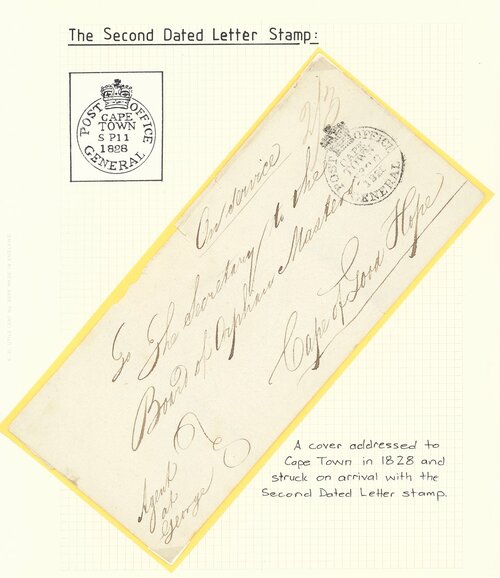 The Second Dated Letter Stamp:
POST OFFICE
CAPE
TOWN
S P 11
1828
GENERAL
2/3
POST OFFICE
CAPE
TOWN
GENERAL
On service
To The Secretary to the
Board of Orphan Masters
Cape of Good Hope
Agent
at
George
A cover addressed to
Cape Town in 1828 and
struck on arrival with the
Second Dated Letter stamp.